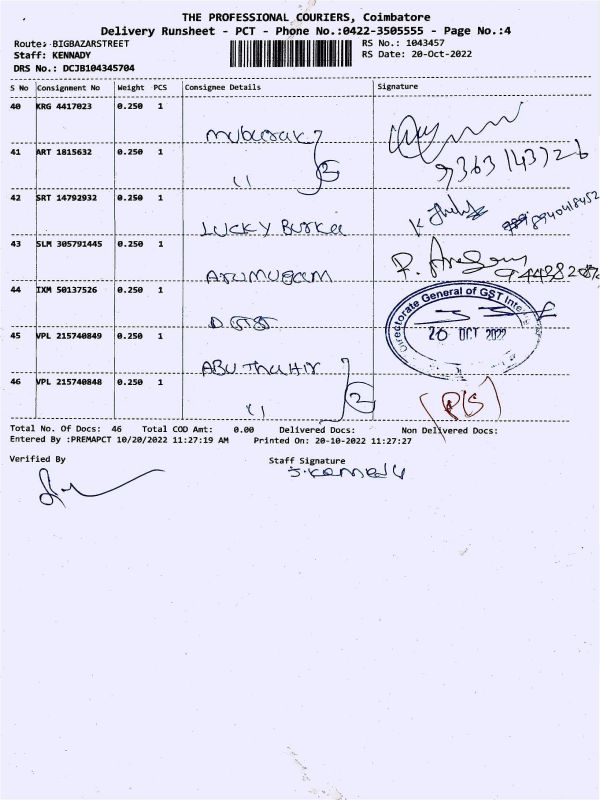 THE PROFESSIONAL COURIERS, Coimbatore
Delivery Runsheet - PCT - Phone No.:0422-3505555 - Page No.:4
Route: BIGBAZARSTREET
RS No.: 1043457
Staff: KENNADY
RS Date: 20-Oct-2022
DRS No.: DCJB104345704
S No Consignment No Weight PCS Consignee Details Signature
40 KRG 4417023 0.250 1
mubarak
41 ART 1815632 0.250 1
9363143726
11 2
42 SRT 14792932 0.250 1
8940418452
LUCKY Burkca
43 SLM 305791445 0.250 1
Arumugam
44 IXM 50137526 0.250 1
Directorate General of GST
DGGST
20 OCT 2022
45 VPL 215740849 0.250 1
ABU Thahir
46 VPL 215740848 0.250 1
11 2
(P/S)
Total No. Of Docs: 46 Total COD Amt: 0.00 Delivered Docs: Non Delivered Docs:
Entered By :PREMAPCT 10/20/2022 11:27:19 AM Printed On: 20-10-2022 11:27:27
Verified By
Staff Signature
J. Kennady